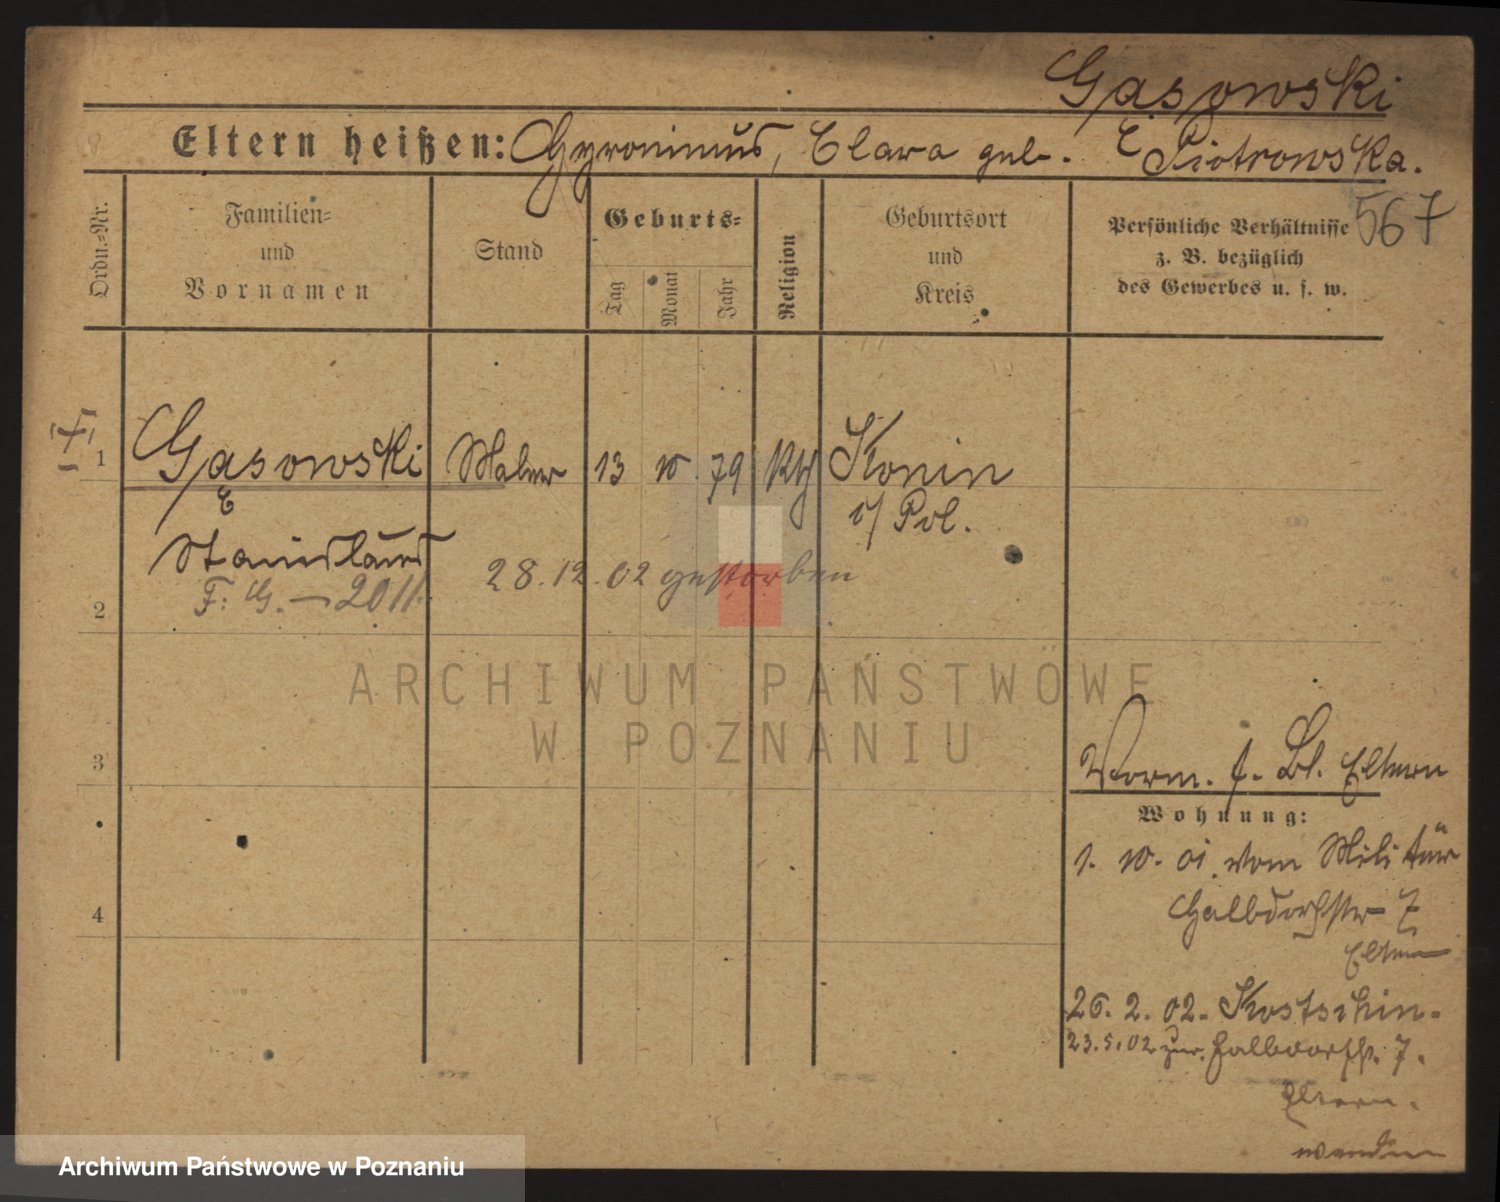 Gąsowski
Eltern heißen: Hyronimus, Clara geb. Piotrowska.
567
Ordn.=Nr.
Familien=
und
Vornamen
Stand
Geburts=
Tag
Monat
Jahr
Religion
Geburtsort
und
Kreis
Persönliche Verhältnisse
z. B. bezüglich
des Gewerbes u. s. w.
1 Gąsowski Maler 13 10 79 Kth Konin
i/ Pol.
Stanislaus
28.12.02 gestorben
F. G. – 2011
2
3
4
Vorm. f. Bl. Eltern
Wohnung:
1. 10. 01. vom Militär
Halbdorfstr 7
Eltern
26. 2. 02. Kostschin.
23.5.02 zur. Halbdorfstr. 7.
Eltern.
wenden
ARCHIWUM PAŃSTWOWE
W POZNANIU
Archiwum Państwowe w Poznaniu